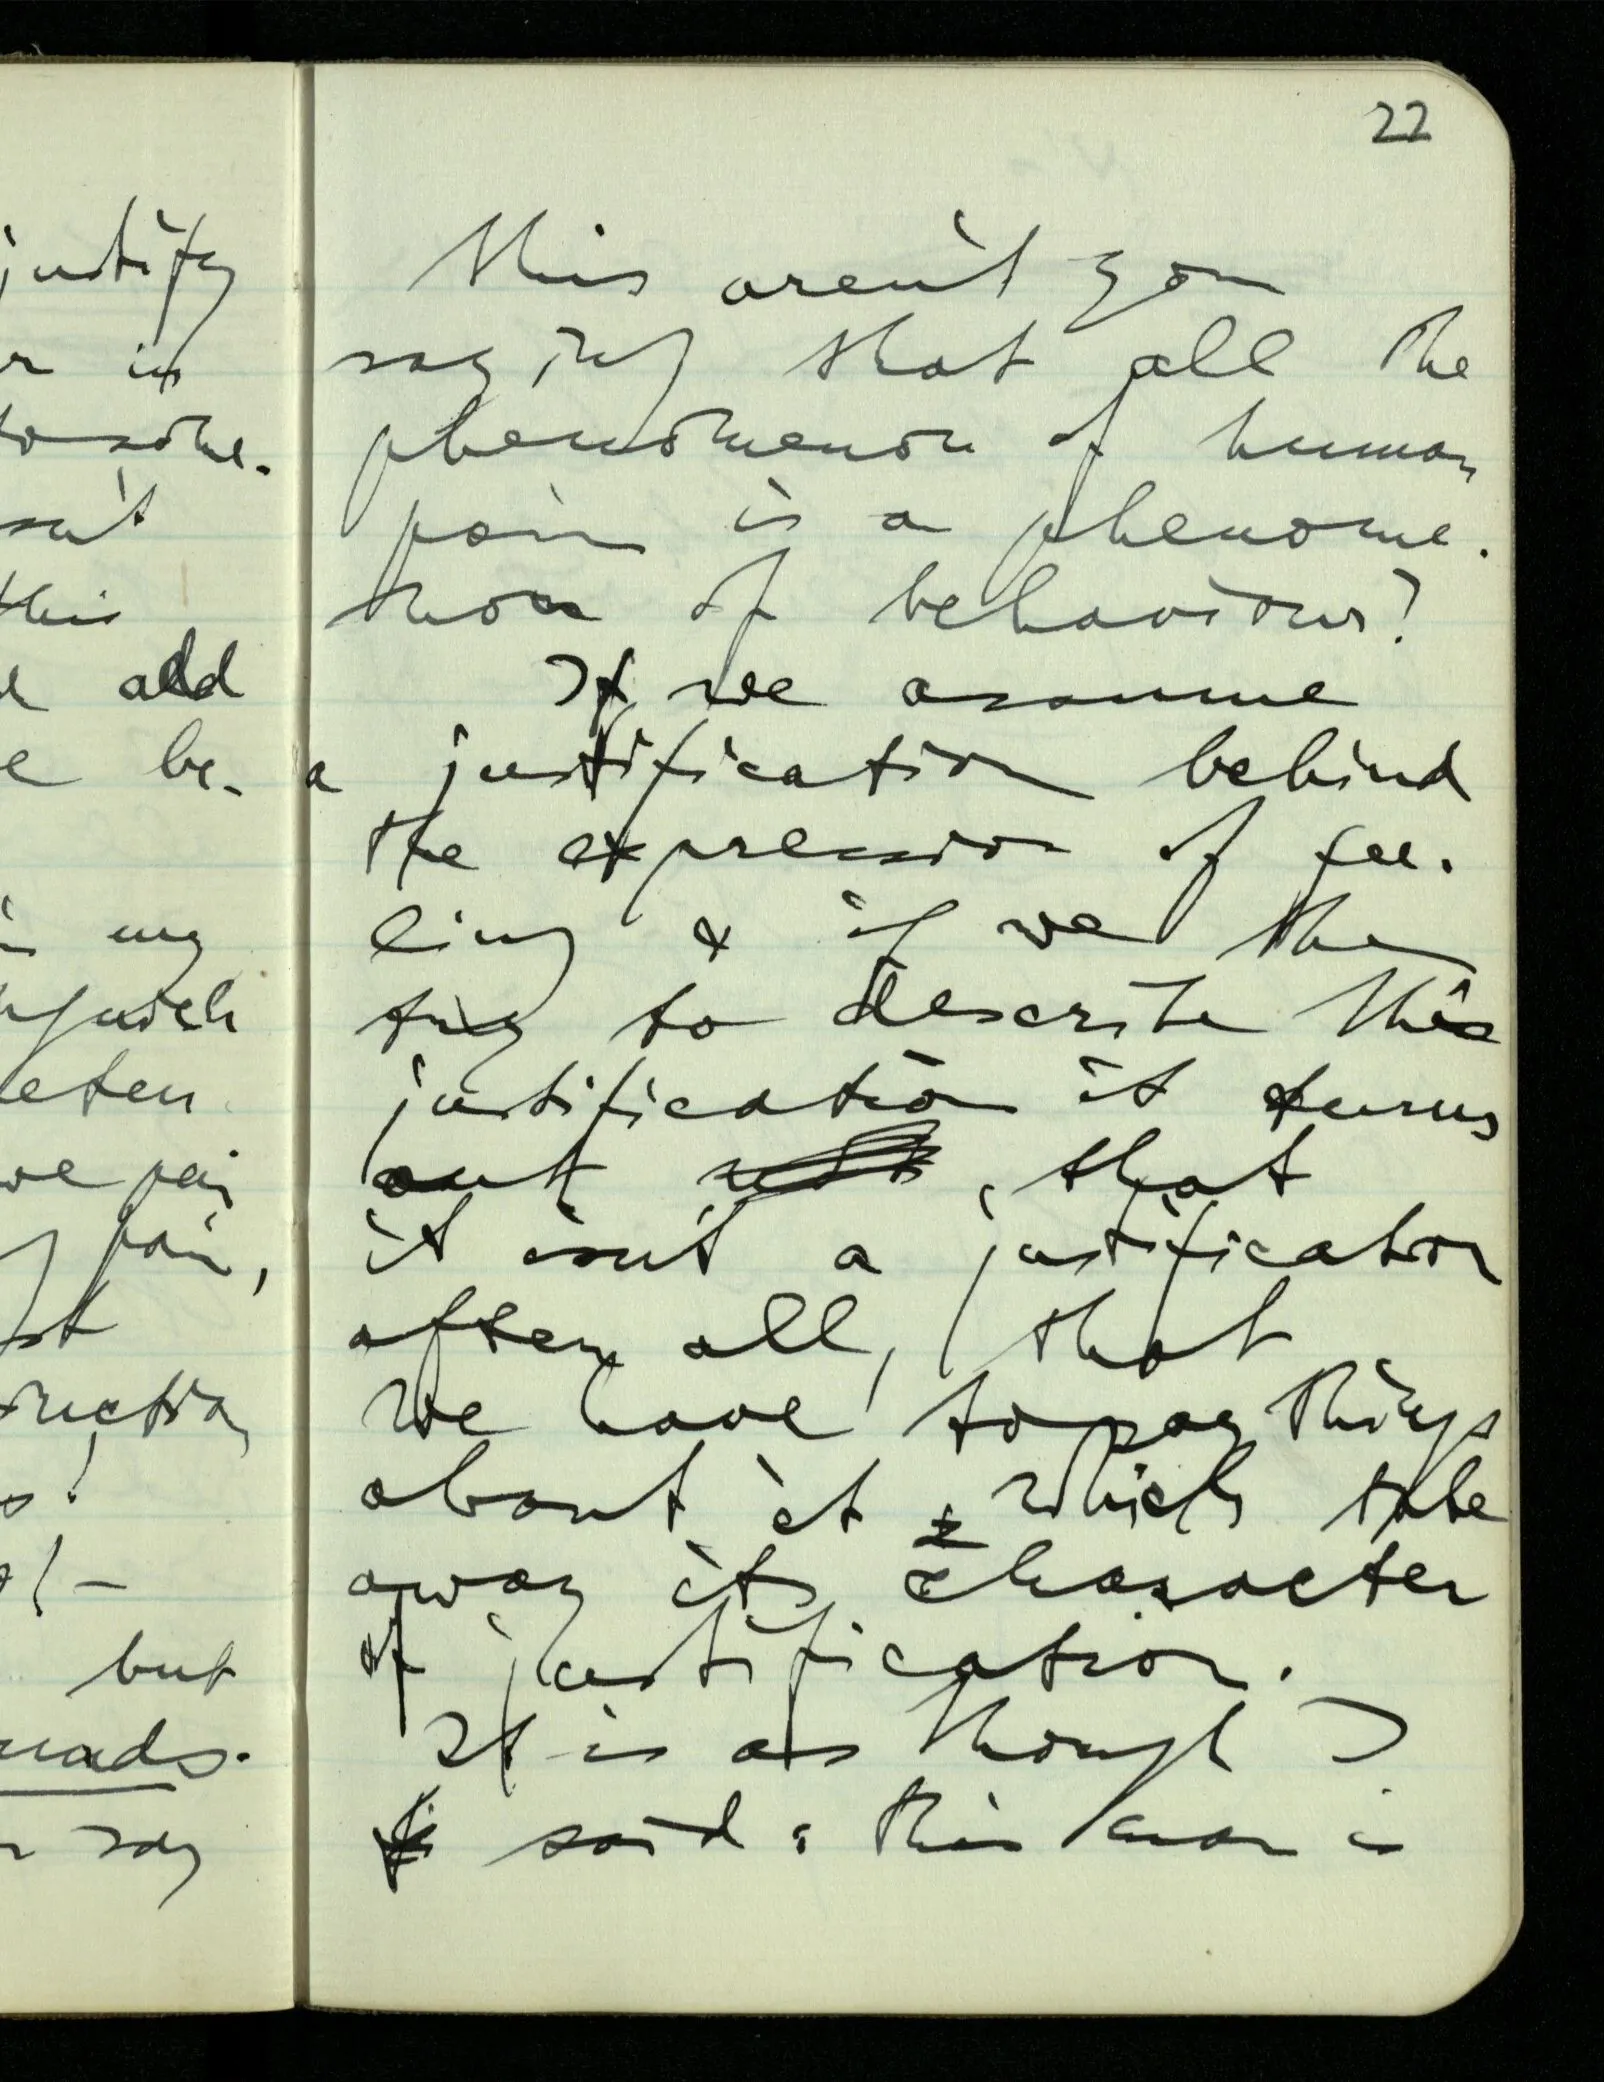 22
justify
in
to some-
sn't
this
add
be-
in my
guish
eten
we pain
pain,
st
ruction
but
nads.
say
this aren't you
saying that all the
phenomenon of human
pain is a phenome-
non of behaviour?
If we assume
a justification behind
the expression of fee-
ling & if we then
try to describe this
justification it turns
out , that
it isn't a justification
after all, that
we have to say things
about it which take
away its character
of justification.
It is as though I
said: this man is